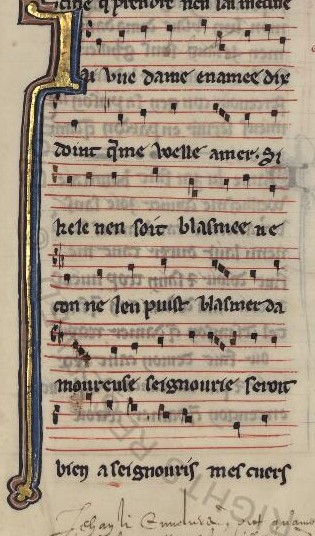 cine q̃ prendre nen sai mecine
J ai vne dame enamee dix
doint q̃me voelle amer. Si
kele nen soit blasmee ne
con ne len puist blasmer da
moureuse seignourie seroit
bien a seignouris mes cuers
Jehan li